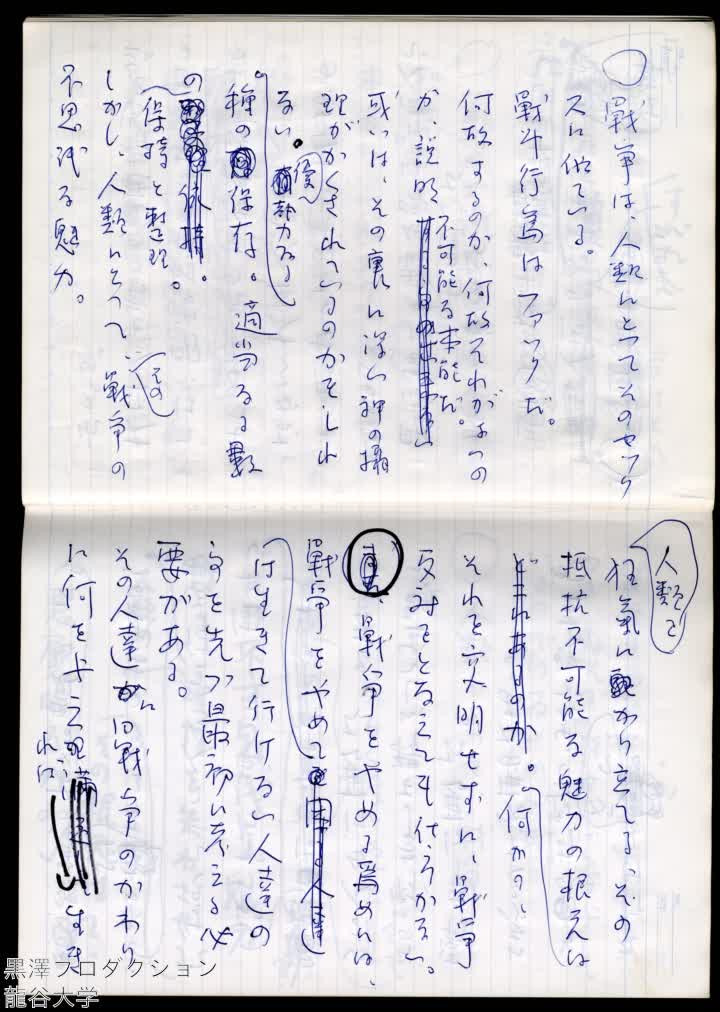 ○ 戰争は、人類にとってそのセック
スに似ている。
戰斗行為はファックだ。
何故するのか、何故それがよいの
か、説明不可能な本能だ。
或いは、その裏に深い神の攝
理がかくされているのかもしれ
ない。
優
種の保存。適当なる數
の保持と整理。
しかし、人類にとって、戰争の
その
不思議な魅力。
人類を
狂氣にかり立てる、その
抵抗不可能な魅力の根元は
何か。
それを文明せずに、戰争
反対をとなえても仕方がない。
戰争をやめる為めには、
戰争をやめて
は生きて行けない人達の
事を先づ最初に考える必
要がある。
その人達には戰争のかわり
に何を与え
れば
生き
黒澤プロダクション
龍谷大学